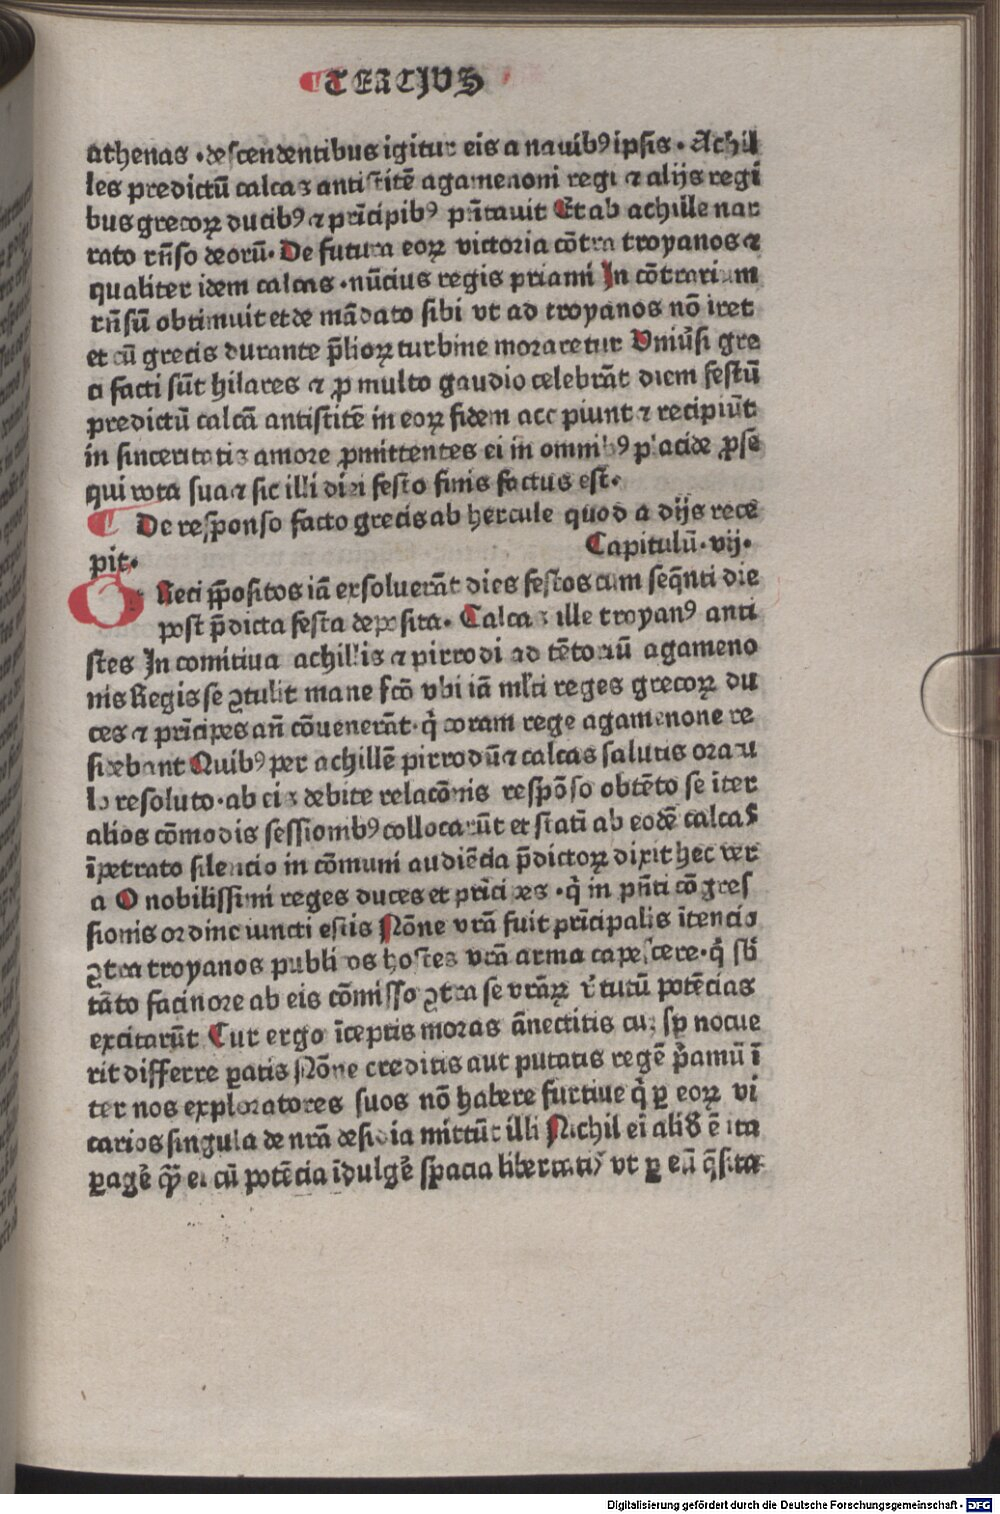 TERCIUS
athenas · descendentibus igitur eis a nauibꝰ ipsis · Achil
les predictū calcas antistitē agamenoni regi ⁊ alijs regi
bus grecoꝝ ducibꝰ ⁊ prīcipibꝰ pn̄tauit Et ab achille nar
rato rn̄so deorū· De futura eoꝝ victoria cōtra troyanos ⁊
qualiter idem calcas · nūcius regis priami In cōtrarium
rn̄sū obtinuit et de mādato sibi vt ad troyanos nō iret
et cū grecis durante p̄lioꝝ turbine moraretur Vniūsi gre
ci facti sūt hilares ⁊ ꝓ multo gaudio celebrāt diem festū
predictū calcā antistitē in eoꝝ fidem accipiunt ⁊ recipiūt
in sinceritatis amore ꝓmittentes ei in omnibꝰ placide ꝓse
qui vota sua ⁊ sic illi diei festo finis factus est·
¶ De responso facto grecis ab hercule quod a dijs rece
pit· Capitulū· vij·
GReci p̄positos iā exsoluerāt dies festos cum seq̄nti die
post p̄dicta festa deposita· Calcas ille troyanꝰ anti
stes In comitiua achillis ⁊ pirrodi ad tētoriū agameno
nis Regis se ꝯtulit mane fcō vbi iā ml̄ti reges grecoꝝ du
ces ⁊ prīcipes an̄ cōuenerāt· q̇ coram rege agamenone re
sidebant Quibꝰ per achillē pirrodū ⁊ calcas salutis oracu
lo resoluto· ab eis debite relacōnis respōso obtēto se īter
alios cōmodis sessionibꝰ collocarūt et statī ab eodē calcas
īpetrato silencio in cōmuni audiēcia p̄dictoꝝ dixit hec ver
a O nobilissimi reges duces et prīcipes · q̇ in pn̄ti cōgres
sionis ordine iuncti estis Nōne vrā fuit prīcipalis ītencio
ꝯtra troyanos publicos hostes vrā arma capescere· q̇ sb̄
tāto facinore ab eis cōmisso ꝯtra se vrāꝝ v̄tutū potēcias
excitarūt Cur ergo īceptis moras ānectitis cur sp̄ nocue
rit differre ꝑatis Nōne creditis aut putatis regē p̄amū ī
ter nos exploratores suos nō habere furtiue q̇ ꝑ eoꝝ vi
carios singula de nrā desidia mittūt illi Nichil ei aliđ ē ita
ꝑagē cū potēcia īdulgē spacia vt ꝑ eā q̄sita
Digitalisierung gefördert durch die Deutsche Forschungsgemeinschaft - DFG